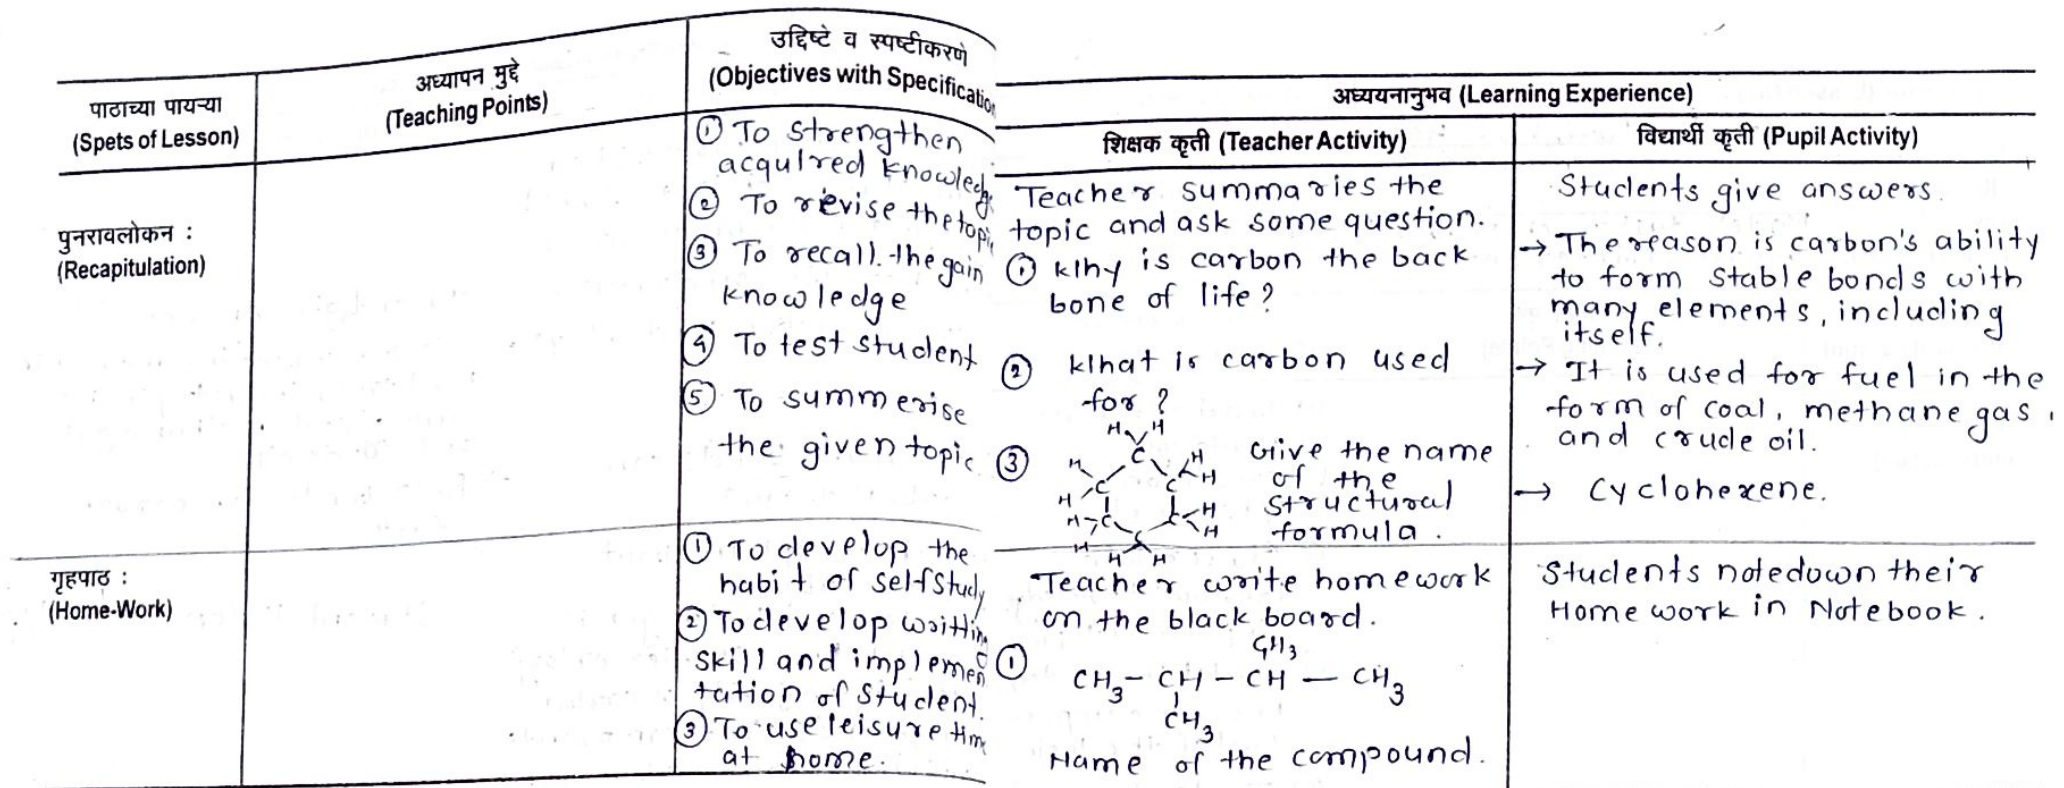 पाठाच्या पायऱ्या
(Spets of Lesson)
अध्यापन मुद्दे
(Teaching Points)
उद्दिष्टे व स्पष्टीकरणे
(Objectives with Specification
अध्ययनानुभव (Learning Experience)
शिक्षक कृती (Teacher Activity)
विद्यार्थी कृती (Pupil Activity)
पुनरावलोकन :
(Recapitulation)
① To strengthen
acquired knowledge
② To revise the topic
③ To recall the gain
knowledge
④ To test student
⑤ To summerise
the given topic
Teacher summaries the
topic and ask some question.
① Why is carbon the back
bone of life?
② What is carbon used
for?
③
H H
C
H C H
C H
H
H C C H
H H
C
H H
Give the name
of the
structural
formula.
Students give answers.
→ The reason is carbon's ability
to form stable bonds with
many elements, including
itself.
→ It is used for fuel in the
form of coal, methane gas,
and crude oil.
→ Cyclohexene.
गृहपाठ :
(Home-Work)
① To develop the
habit of self study
② To develop writting
skill and implemen
tation of student.
③ To use leisure time
at home.
Teacher write homework
on the black board.
①
CH3
CH3 - CH - CH - CH3
CH3
Name of the compound.
Students notedown their
Home work in Notebook.